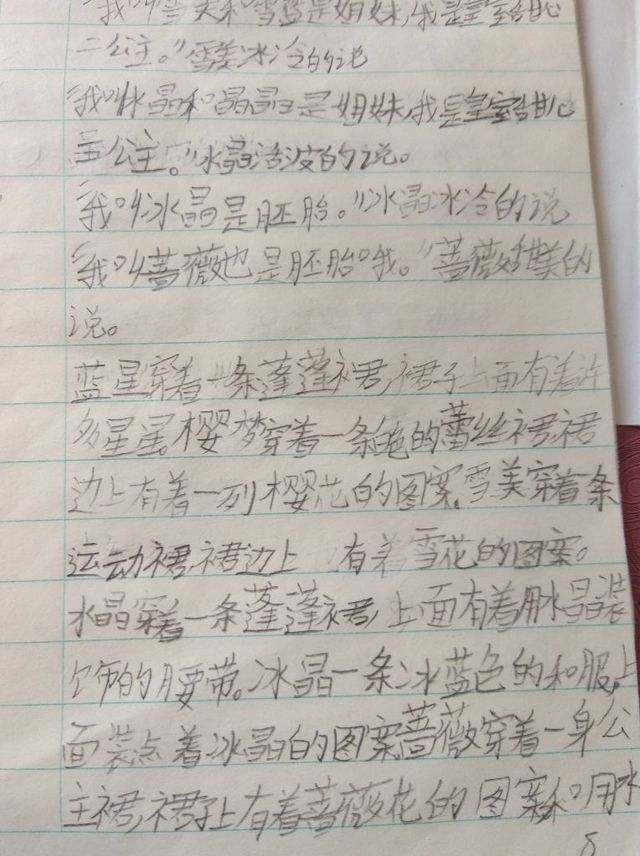 "我叫雪美和雪蓝是姐妹,我是皇室甜心
二公主。"雪美冰冷的说
"我叫水晶和晶晶是姐妹,我是皇室甜心
三公主。"水晶活波的说。
"我叫冰晶是胚胎。"冰晶冰冷的说
"我叫蔷薇也是胚胎哦。"蔷薇甜美的
说。
蓝星穿着一条蓬蓬裙,裙子上面有着许
多星星。樱梦穿着一条色的蕾丝裙,裙
边上有着一列樱花的图案,雪美穿着条
运动裙,裙边上 有着雪花的图案。
水晶穿着一条蓬蓬裙,上面有着用水晶装
饰的腰带。冰晶一条冰蓝色的和服,上
面装点着冰晶的图案蔷薇穿着一身公
主裙,裙子上有着蔷薇花的图案和用水